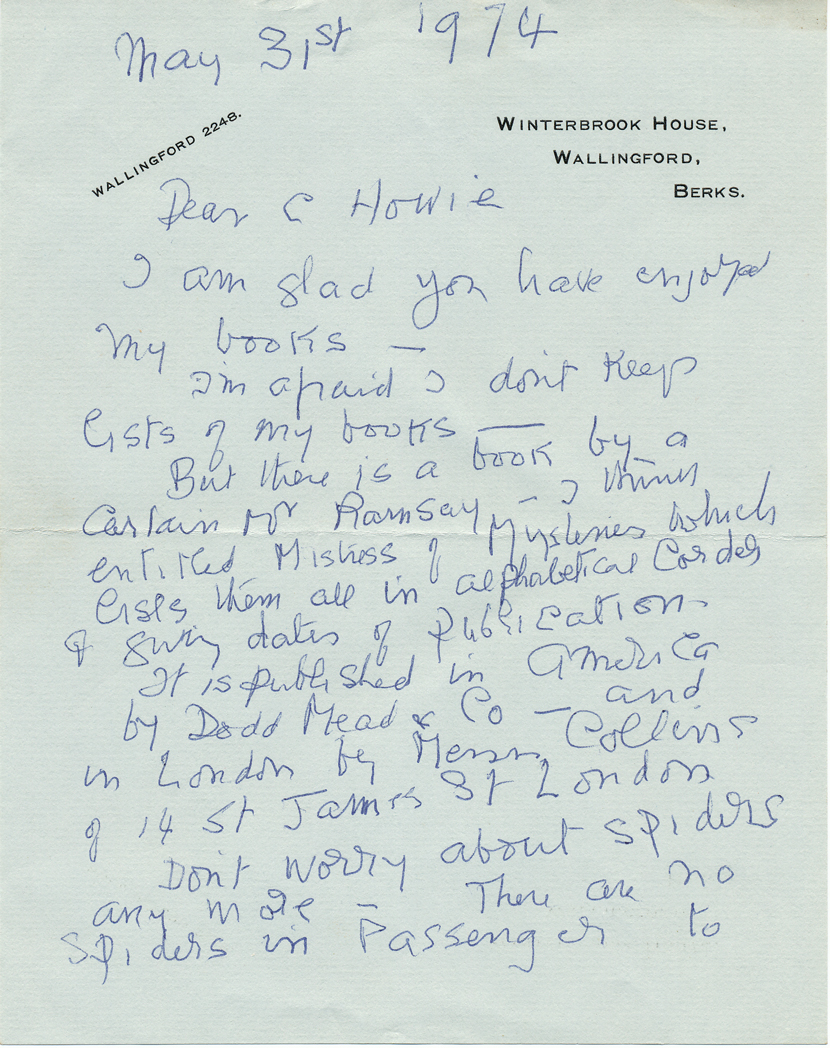 May 31st 1974
WALLINGFORD 2248.
WINTERBROOK HOUSE,
WALLINGFORD,
BERKS.
Dear C Howie
I am glad you have enjoyed
my books —
I'm afraid I don't keep
lists of my books —
But there is a book by a
certain Mr Ramsay — I think
entitled Mistress of Mysteries which
lists them all in alphabetical order
& giving dates of publication
It is published in America
by Dodd Mead & Co — and
in London by Messrs Collins
of 14 St James St London
Don't worry about spiders
any more — There are no
spiders in Passenger to